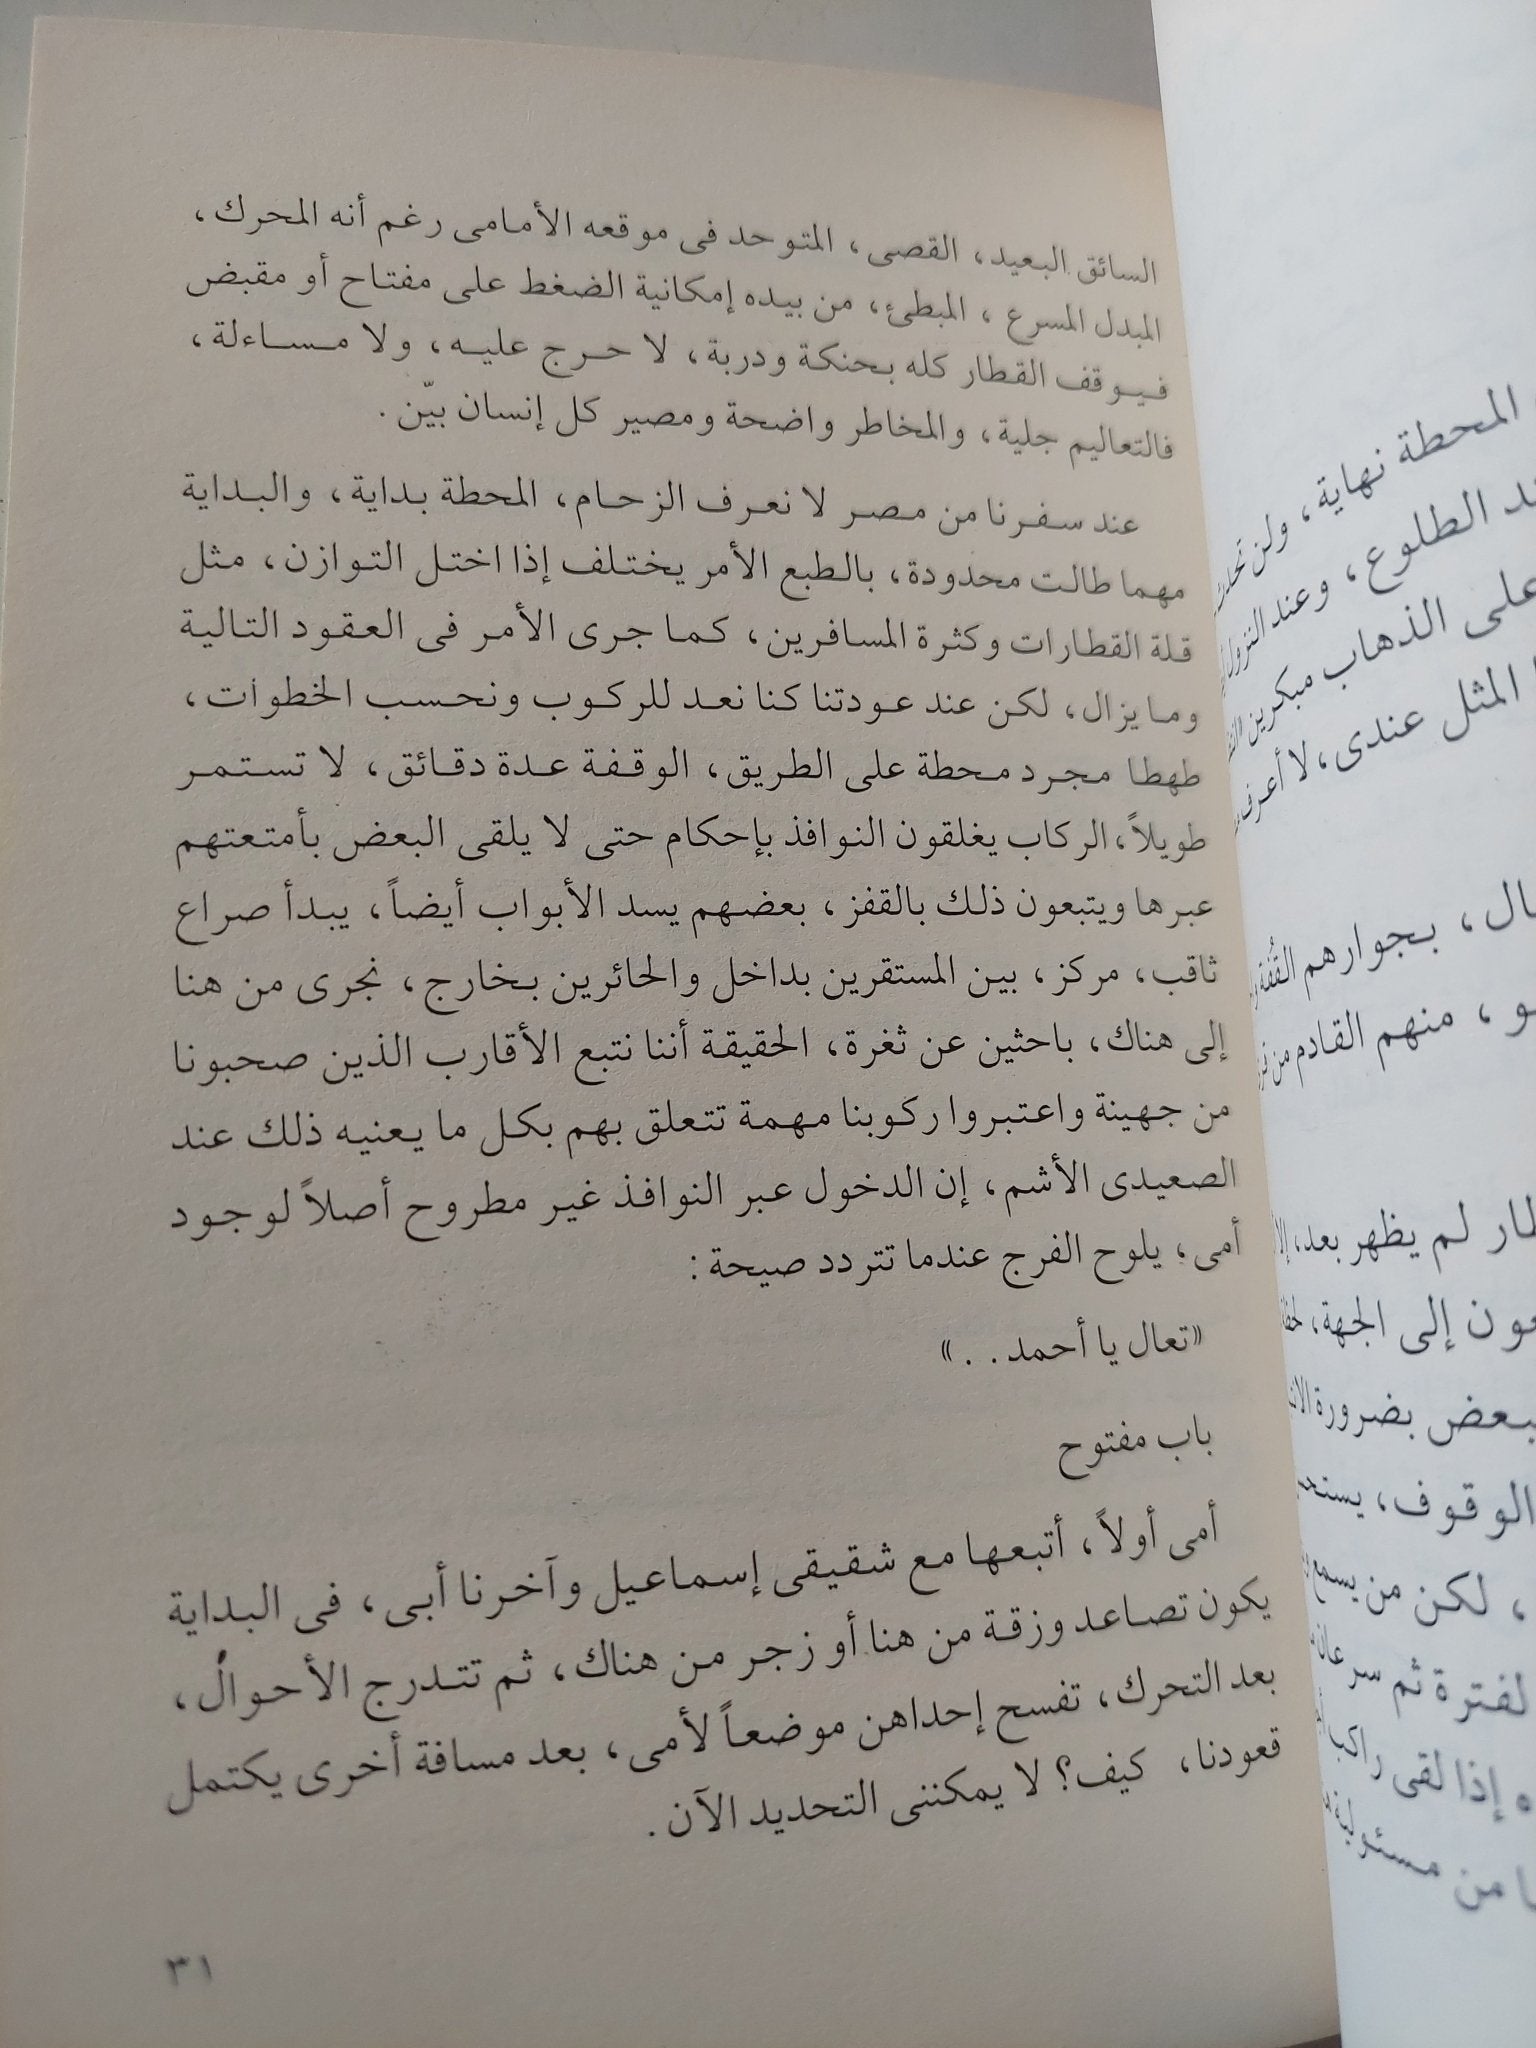 السائق البعيد، القصى، المتوحد فى موقعه الأمامى رغم أنه المحرك،
المبدل المسرع، المبطئ، من بيده إمكانية الضغط على مفتاح أو مقبض
فيوقف القطار كله بحنكة ودربة، لا حرج عليه، ولا مساءلة،
فالتعاليم جلية، والمخاطر واضحة ومصير كل إنسان بيّن.
عند سفرنا من مصر لا نعرف الزحام، المحطة بداية، والبداية
مهما طالت محدودة، بالطبع الأمر يختلف إذا اختل التوازن، مثل
قلة القطارات وكثرة المسافرين، كما جرى الأمر فى العقود التالية
وما يزال، لكن عند عودتنا كنا نعد للركوب ونحسب الخطوات،
طهطا مجرد محطة على الطريق، الوقفة عدة دقائق، لا تستمر
طويلاً، الركاب يغلقون النوافذ بإحكام حتى لا يلقى البعض بأمتعتهم
عبرها ويتبعون ذلك بالقفز، بعضهم يسد الأبواب أيضاً، يبدأ صراع
ثاقب، مركز، بين المستقرين بداخل والحائرين بخارج، نجرى من هنا
إلى هناك، باحثين عن ثغرة، الحقيقة أننا نتبع الأقارب الذين صحبونا
من جهينة واعتبروا ركوبنا مهمة تتعلق بهم بكل ما يعنيه ذلك عند
الصعيدى الأشم، إن الدخول عبر النوافذ غير مطروح أصلاً لوجود
أمى، يلوح الفرج عندما تتردد صيحة:
«تعال يا أحمد..»
باب مفتوح
أمى أولاً، أتبعها مع شقيقى إسماعيل وآخرنا أبى، فى البداية
يكون تصاعد وزقة من هنا أو زجر من هناك، ثم تتدرج الأحوال،
بعد التحرك، تفسح إحداهن موضعاً لأمى، بعد مسافة أخرى يكتمل
قعودنا، كيف؟ لا يمكننى التحديد الآن.
٣١
المحطة نهاية، ولن
الطلوع، وعند النزول
على الذهاب مبكرين
المثل عندى، لا أعرف
بجوارهم القُفة
منهم القادم من
لم يظهر بعد،
إلى الجهة،
بضرورة
الوقوف،
، لكن من يسمع
لفترة ثم
إذا لقى راكب
من مسئولية